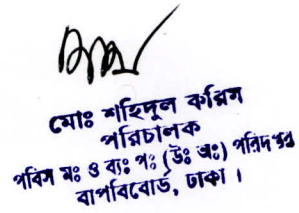 মোঃ শহিদুল করিম
পরিচালক
পবিস মঃ ও ব্যঃ পঃ (উঃ অঃ) পরিদপ্তর
বাপবিবোর্ড, ঢাকা ।